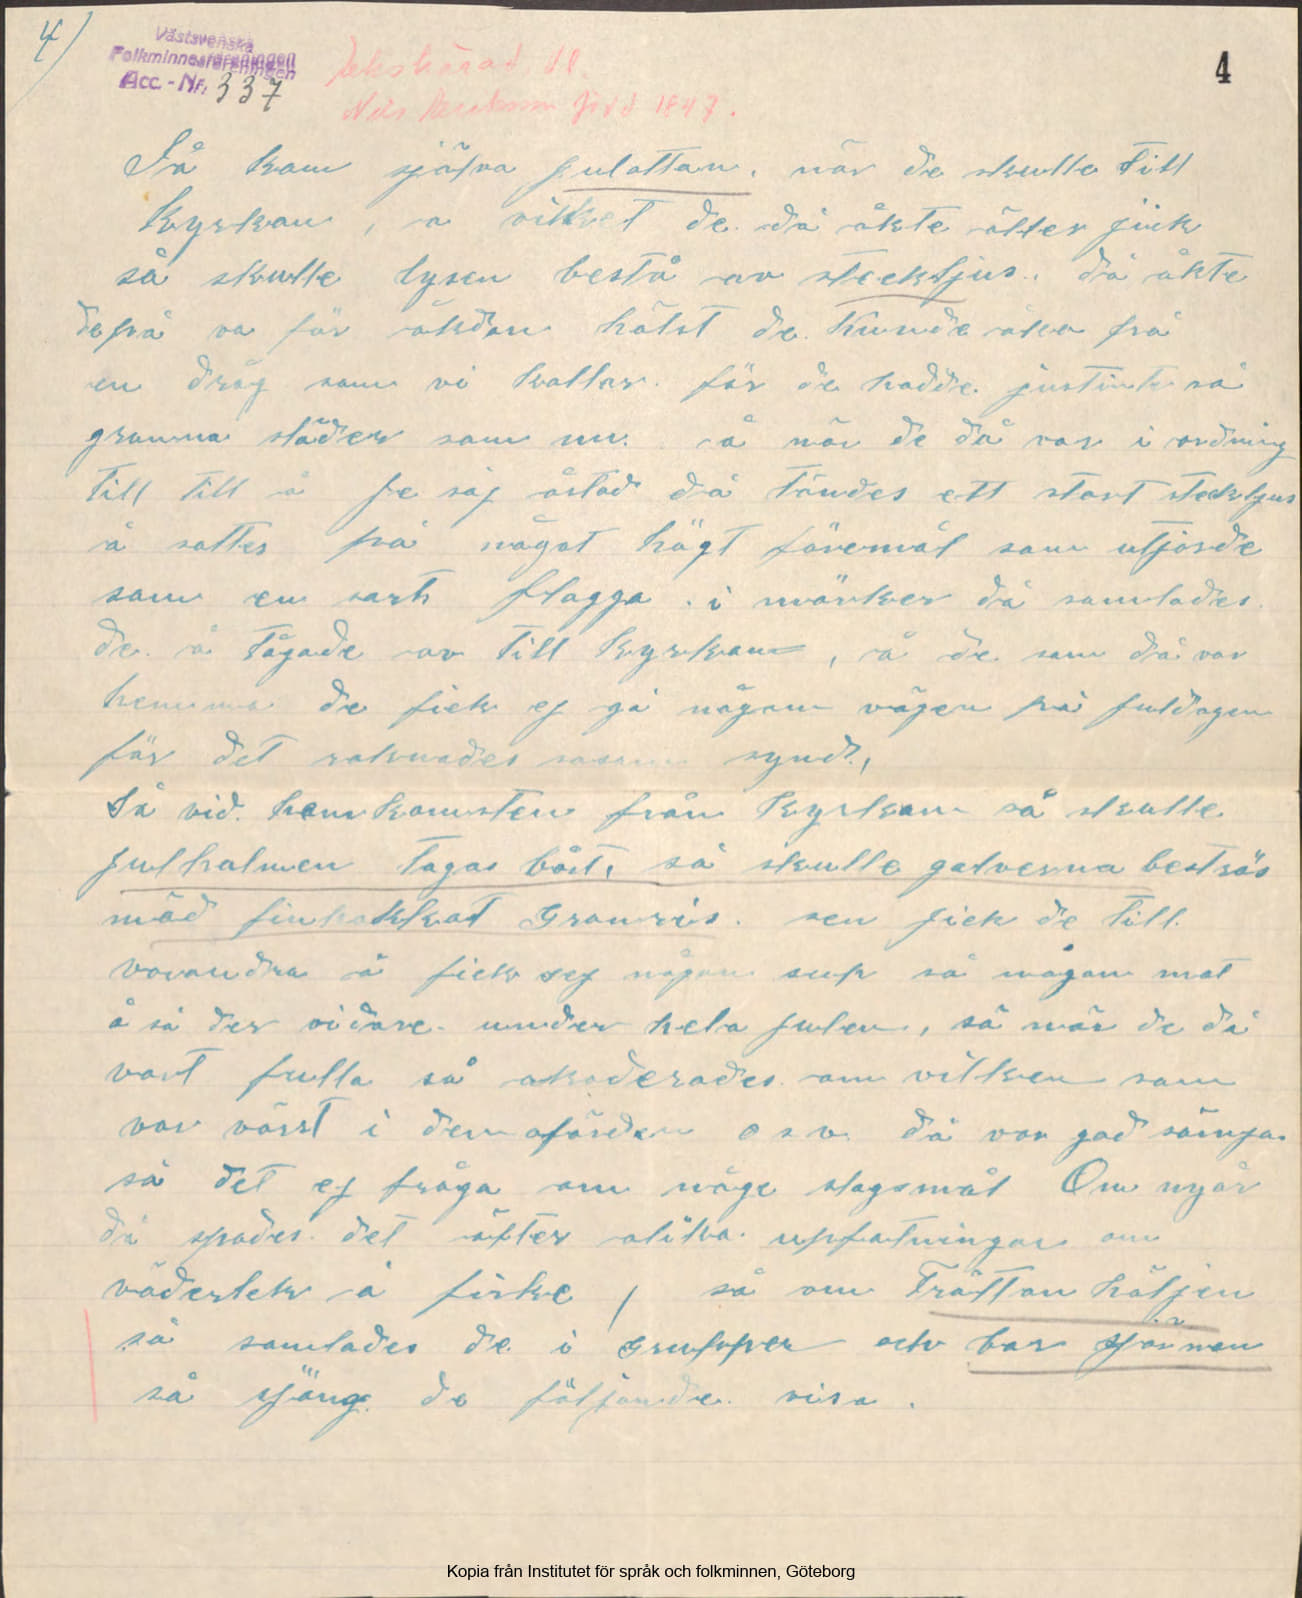 4)
Västsvenska
Folkminnesföreningen
Acc. - Nr. 337
4
född 1847.
Så kom själva julottan, när de skulle till
Kyrkan, a vilket de då åkte äller jick
så skulle lysen bestå av steckljus. då åkte
de på va för åkdon hälst de kunde åka på
en dräg som vi kallar. för de hadde justinte så
granna släder som nu. å när de då var i ordning
till till å je säj åstad då tändes ett stort steckljus
å sattes på något högt föremål som utjorde
som en sorts flagga. i mörker då samlades
de å tågade av till kyrkan, å de som då var
hemma de fick ej gå någon vägen på juldagen
för det räknades som synd,
Så vid hemkomsten från Kyrkan så skulle
julhalmen tagas bårt, så skulle golverna beströs
mäd finhakkat Granris. sen jick de till
varandra å fick sej någon sup så någon mat
å så der vidare under hela julen, så när de då
vart fulla så om vilken som
var värst i den o s v. då var god sämja
så det ej fråga om någe slagsmål Om nyår
då spades det äfter olika upfatningar om
väderlek å fiske, så om Trättan häljen
så samlades de i grupper och bar sjärnan
så sjöng de följande visa.
Kopia från Institutet för språk och folkminnen, Göteborg